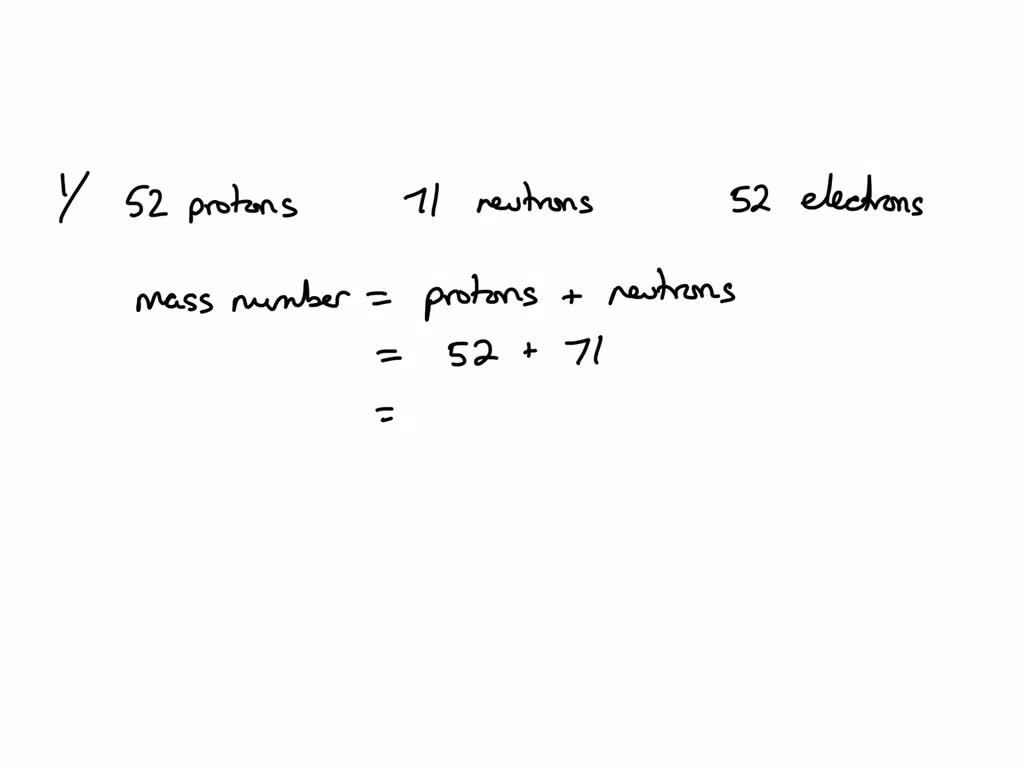 1/ 52 protons 71 neutrons 52 electrons
mass number = protons + neutrons
= 52 + 71
=